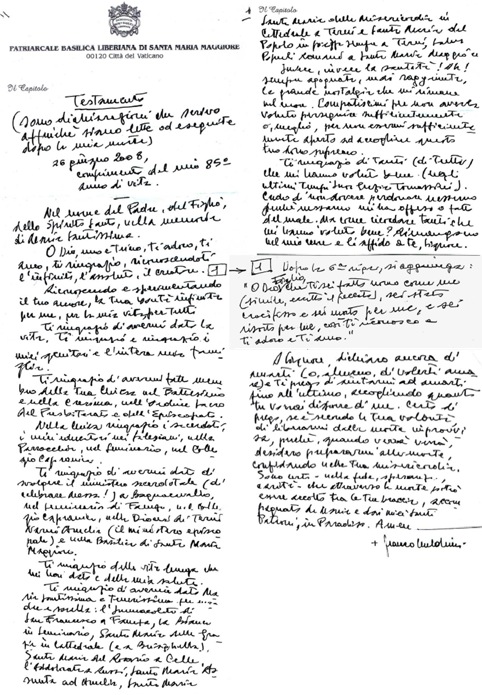 PATRIARCALE BASILICA LIBERIANA DI SANTA MARIA MAGGIORE
00120 Città del Vaticano
Il Capitolo
Testamento
(sono dichiarazioni che scrivo
affinché siano lette ed eseguite
dopo la mia morte)
26 giugno 2008,
compimento del mio 85º
anno di vita.
Nel nome del Padre, del Figlio,
dello Spirito Santo, nella memoria
di Maria Santissima.
O Dio, uno e trino, ti adoro, ti
amo, ti ringrazio, riconoscendoti
l'infinito, l'assoluto, il creatore. 1
Riconoscendo e sperimentando
il tuo amore, la tua bontà infinita
per me, per la mia vita, per tutti
Ti ringrazio di avermi dato la
vita. Ti ringrazio e ringrazio i
miei genitori e l'intera mia fami-
glia.
Ti ringrazio d'avermi fatto mem-
bro della tua Chiesa nel Battesimo
e nella Cresima, nell'Ordine Sacro
del Presbiterato e dell'Episcopato.
Nella Chiesa ringrazio i sacerdoti,
i miei educatori nei Salesiani, nella
Parrocchia, nel Seminario, nel Colle-
gio Capranica.
Ti ringrazio di avermi dato di
svolgere il ministero sacerdotale (di
celebrare messa!) a Bagnacavallo,
nel Seminario di Faenza, nel Colle-
gio Capranica, nella Diocesi di Terni
Narni Amelia (il ministero episco-
pale) e nella Basilica di Santa Maria
Maggiore.
Ti ringrazio della vita lunga che
mi hai dato e della mia salute.
Ti ringrazio d'avermi dato Ma-
ria Santissima
dre e sorella: l'Immacolata di
San Francesco a Faenza, la
in Seminario, Santa Maria delle Gra-
zie in Cattedrale (e a Brisighella),
Santa Maria del Rosario a Celle
l'Addolorata a Russi, Santa Maria As-
sunta ad Amelia, Santa Maria
Il Capitolo
Santa Maria della Misericordia in
Cattedrale a Terni e Santa Maria del
Popolo in sempre a Terni, Salus
Populi Romani a Santa Maria Maggiore
invece la santità! Oh!
sempre agognata, mai raggiunta,
la grande nostalgia che mi rimane
nel cuore. Compatiscimi per non averla
voluta perseguire sufficientemente
o, meglio, per non essermi sufficiente
mente aperto ad accogliere questo
tuo dono supremo.
Ti ringrazio di tanti (di tutti)
che mi hanno voluto bene (negli
ultimi tempi
Credo di non dovere perdonare nessuno
perché nessuno mi ha offeso o fatto
del male. Ma come ricordare tanti che
mi hanno voluto bene? Rimangono
nel mio cuore e li affido a te, Signore.
1 Dopo la 6ª riga, si aggiunga:
"O Dio, Figlio, che ti sei fatto uomo come me
(simile, eccetto il peccato), sei stato
crocifisso e sei morto per me, e sei
risorto per me, con Ti riconosco e
ti adoro e ti amo."
O Signore, dichiaro ancora d'
amarti (o, almeno, di volerti ama
re) e Ti prego di aiutarmi ad amarti
fino all'ultimo, accogliendo quanto
tu vorrai disporre di me. Certo ti
prego, se è secondo la tua volontà,
di liberarmi dalla morte improvvi
sa, perché, quando verrà
desidero prepararmi alla morte,
confidando nella tua misericordia.
Sono certo nella fede, speranza,
carità che attraverso la morte potrò
essere accolto tra le tue braccia, accom
pagnato da Maria e dai miei Santi
Patroni, in Paradiso. Amen
+ Franco Gualdrini